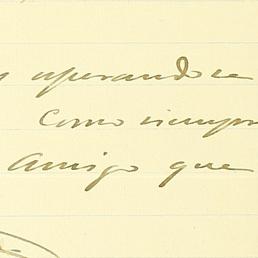 esperandole
como siempre
amigo que